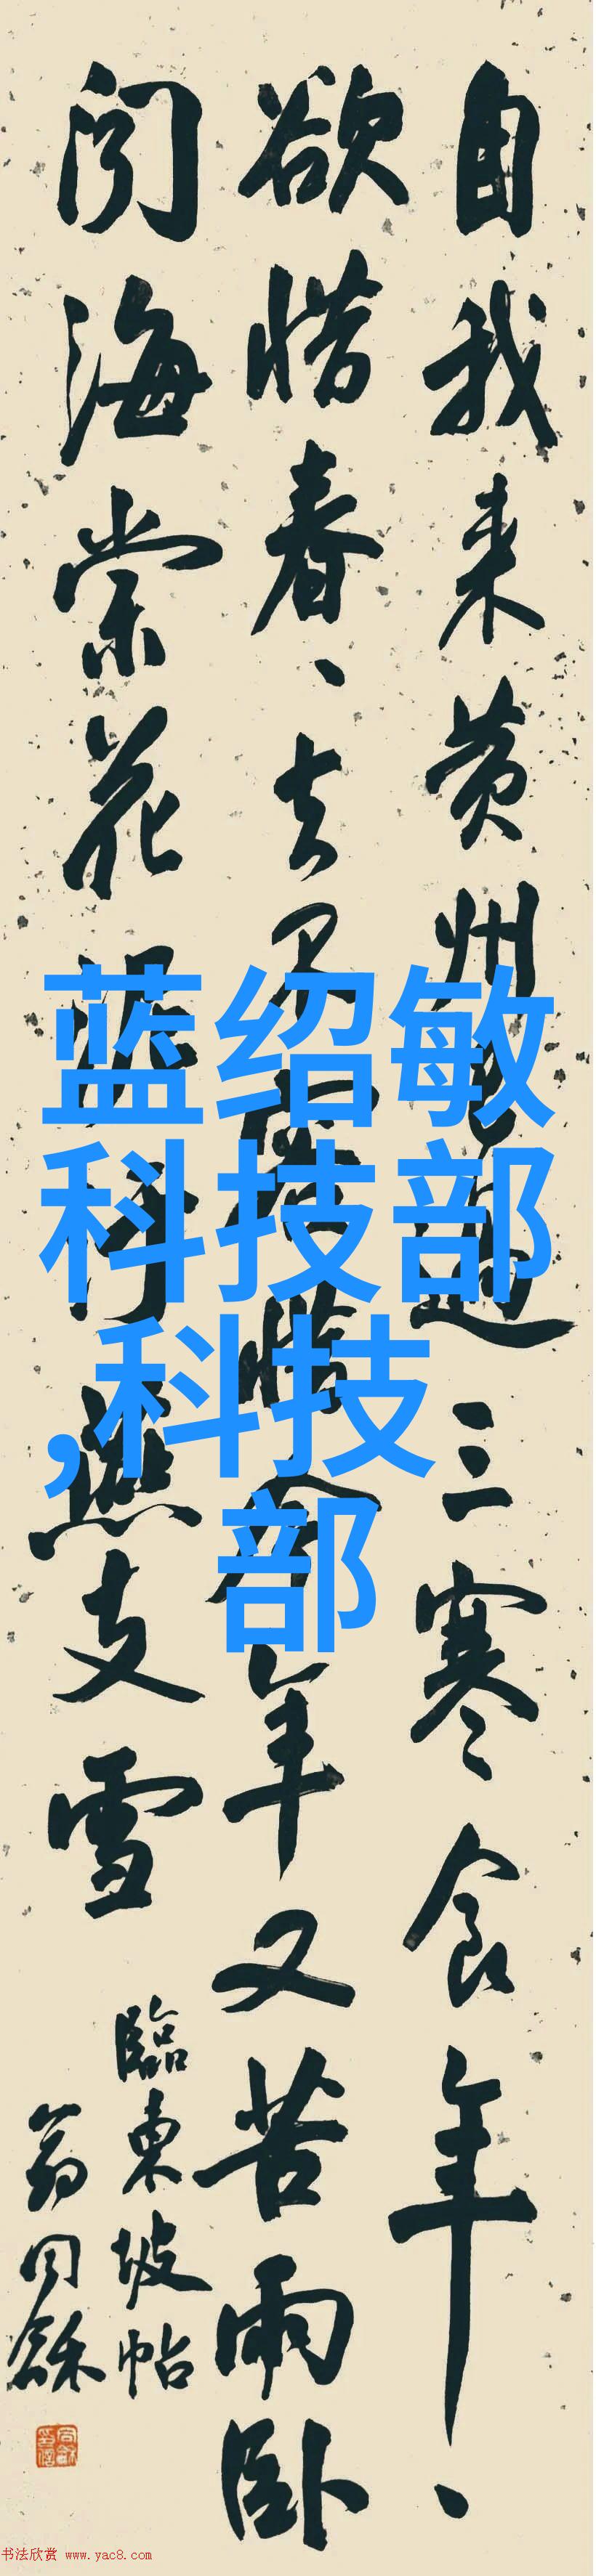 自我来黄州已过三寒食年、
欲惜春、去不容惜今年又苦雨
卧闻海棠花泥污燕支雪
临东坡帖
翁同龢
蓝绍敏
科技部
,科技
部
书法欣赏 www.yac8.com